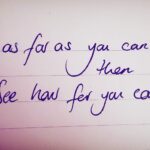 as far as you can
then
see how fer you ca